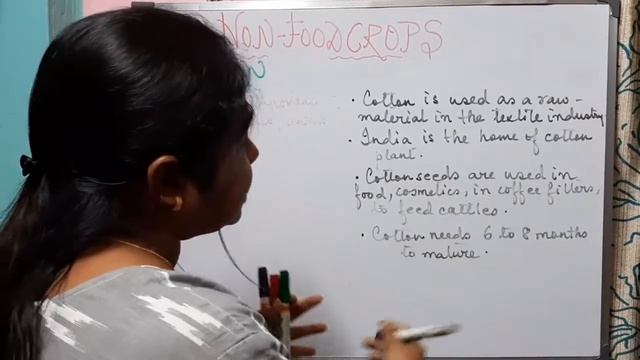 NON-FOOD CROPS
N
• Cotton is used as a raw-
material in the textile industry
• India is the home of cotton
plant.
• Cotton seeds are used in
food, cosmetics, in coffee filters,
to feed cattles.
• Cotton needs 6 to 8 months
to mature.